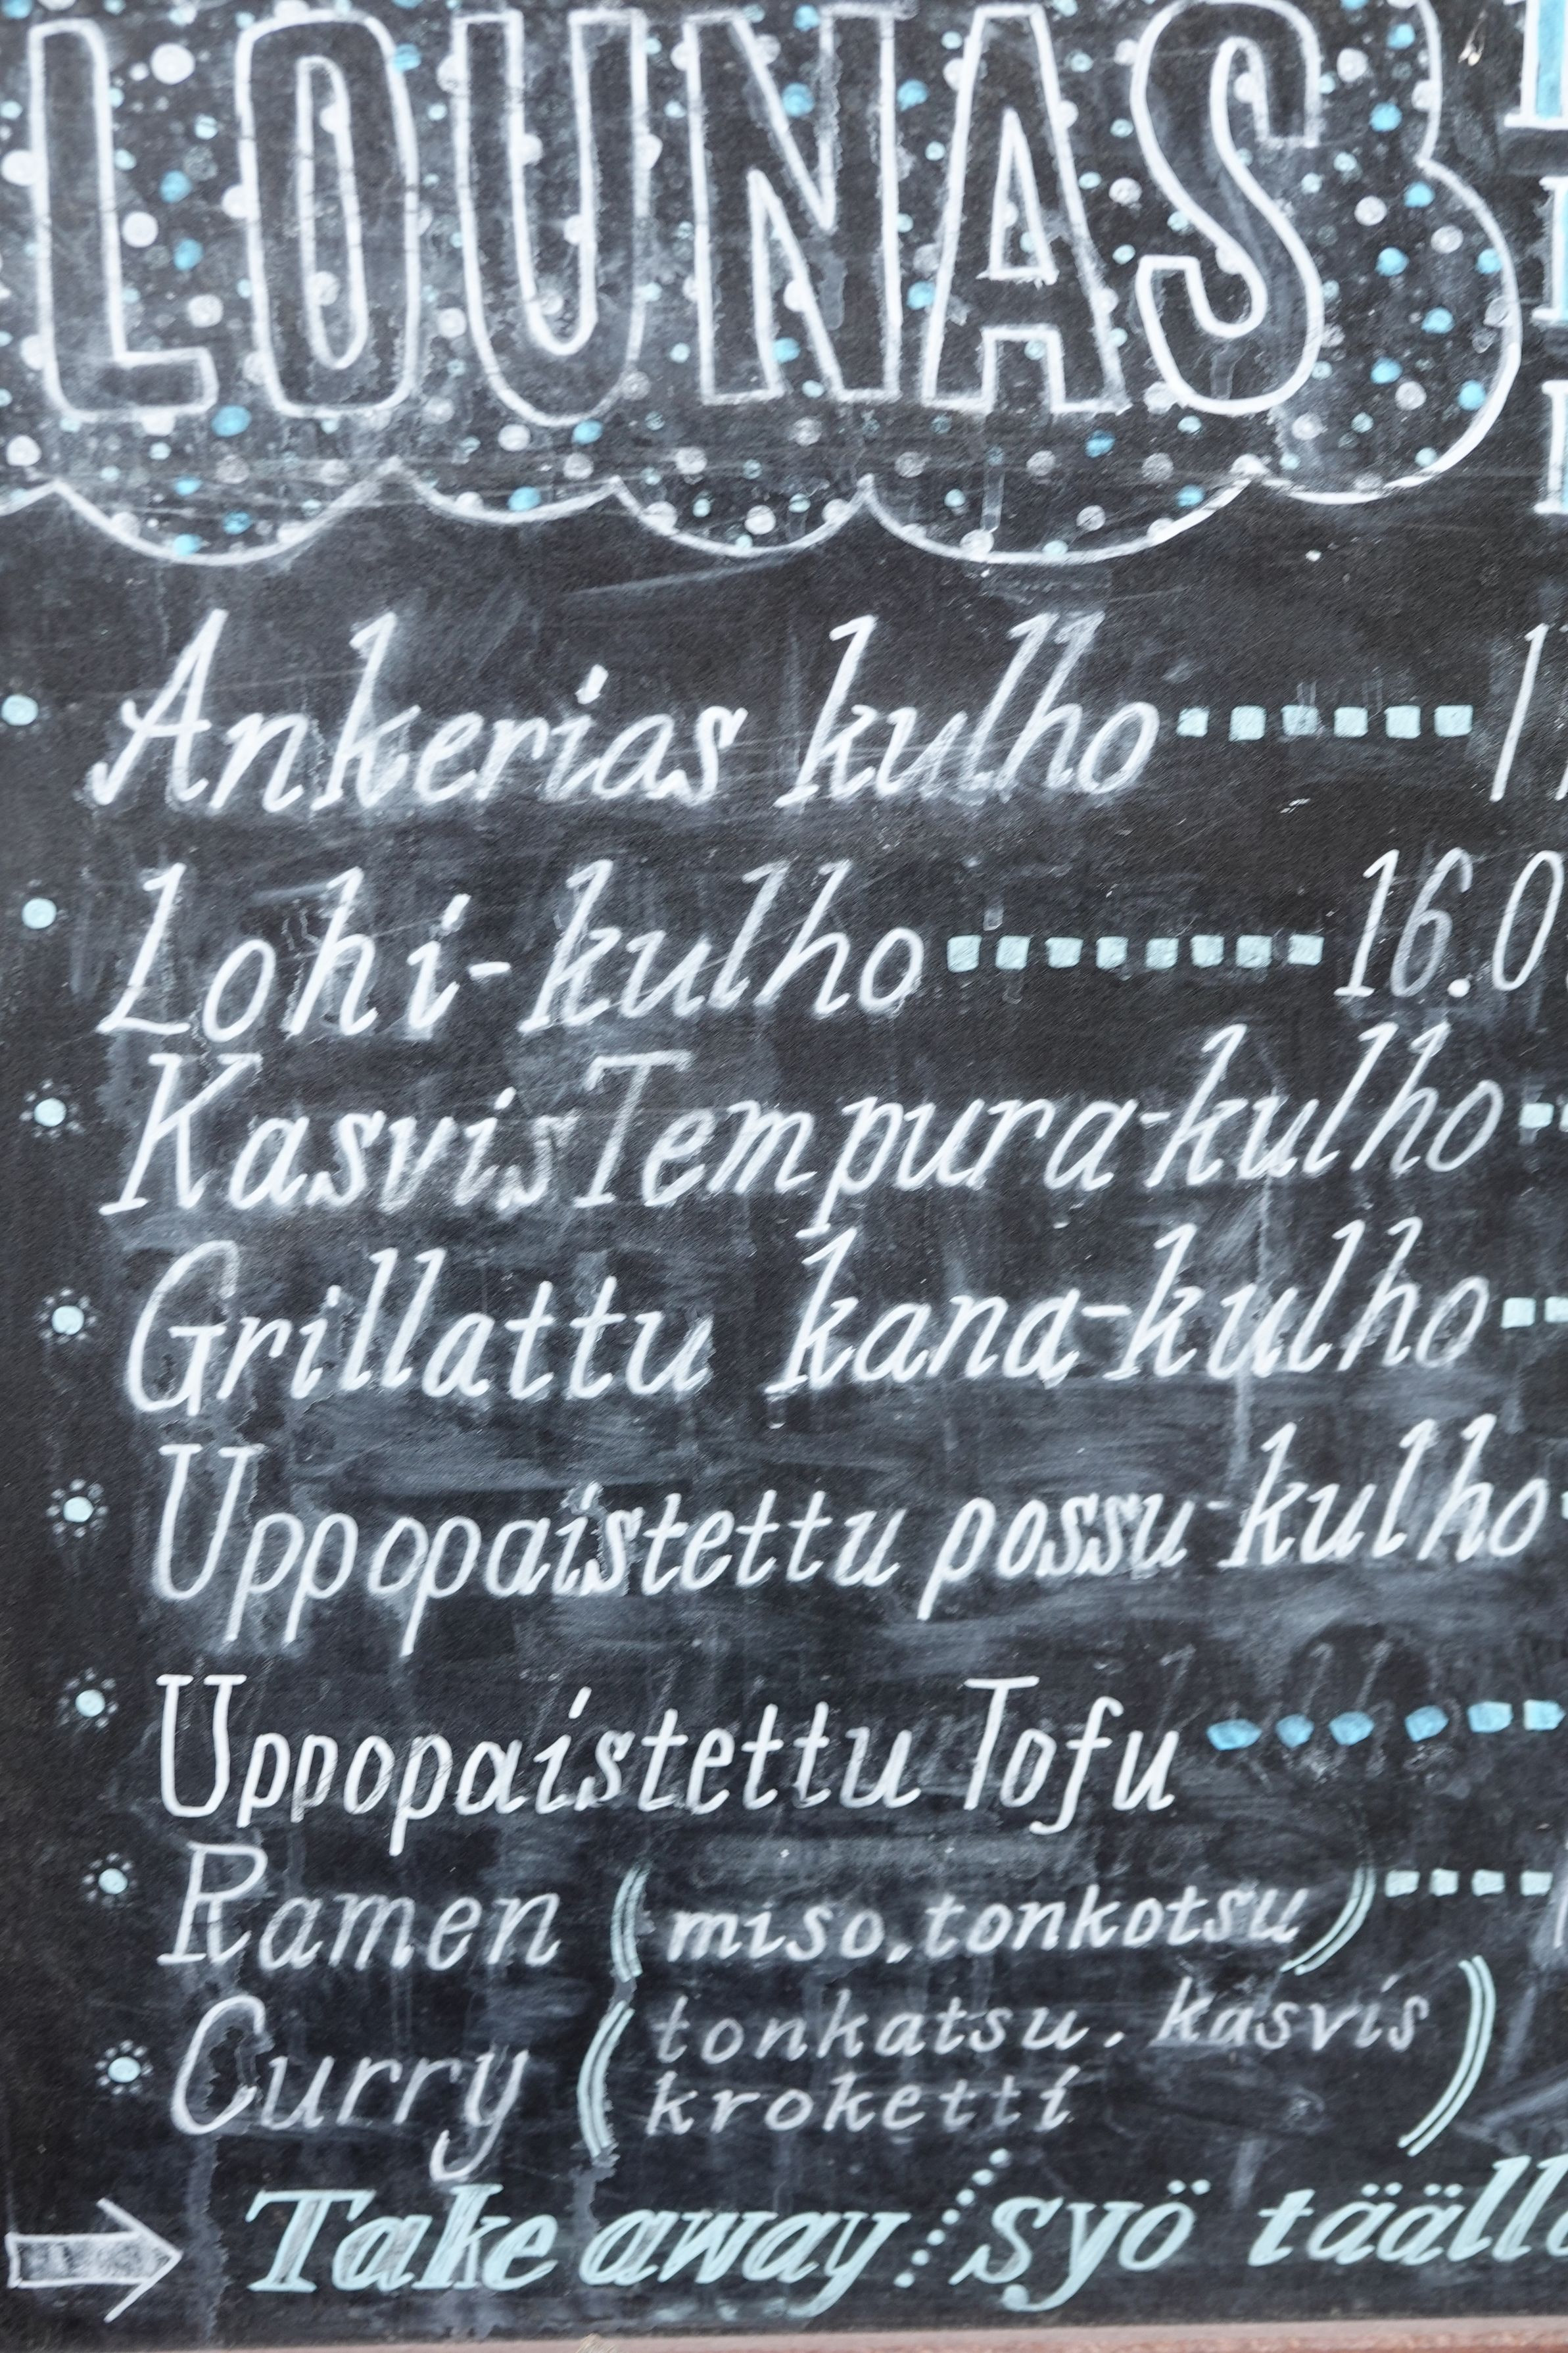 LOUNAS
Ankerias kulho
Lohi-kulho 16.0
Kasvis Tempura-kulho
Grillattu kana-kulho
Uppopaistettu possu-kulho
Uppopaistettu Tofu
Ramen (miso, tonkotsu)
Curry (tonkatsu. kasvis
kroketti)
Take away syö tääll